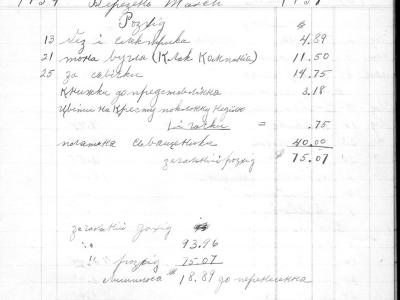 1939 Березень March 1939
Розхід $
13 Ґез і електрика 4.89
21 тона вугла (Клак Компанія) 11.50
25 за свічки 14.75
Книжки до представліня 3.18
Цвіти на Кресту поклонну неділю
і = .75
платня священика 40.00
загальний розхід 75.07
загальний дохід
" 93.96
" " розхід 75.07
Лишилося $ 18.89 до перенесення